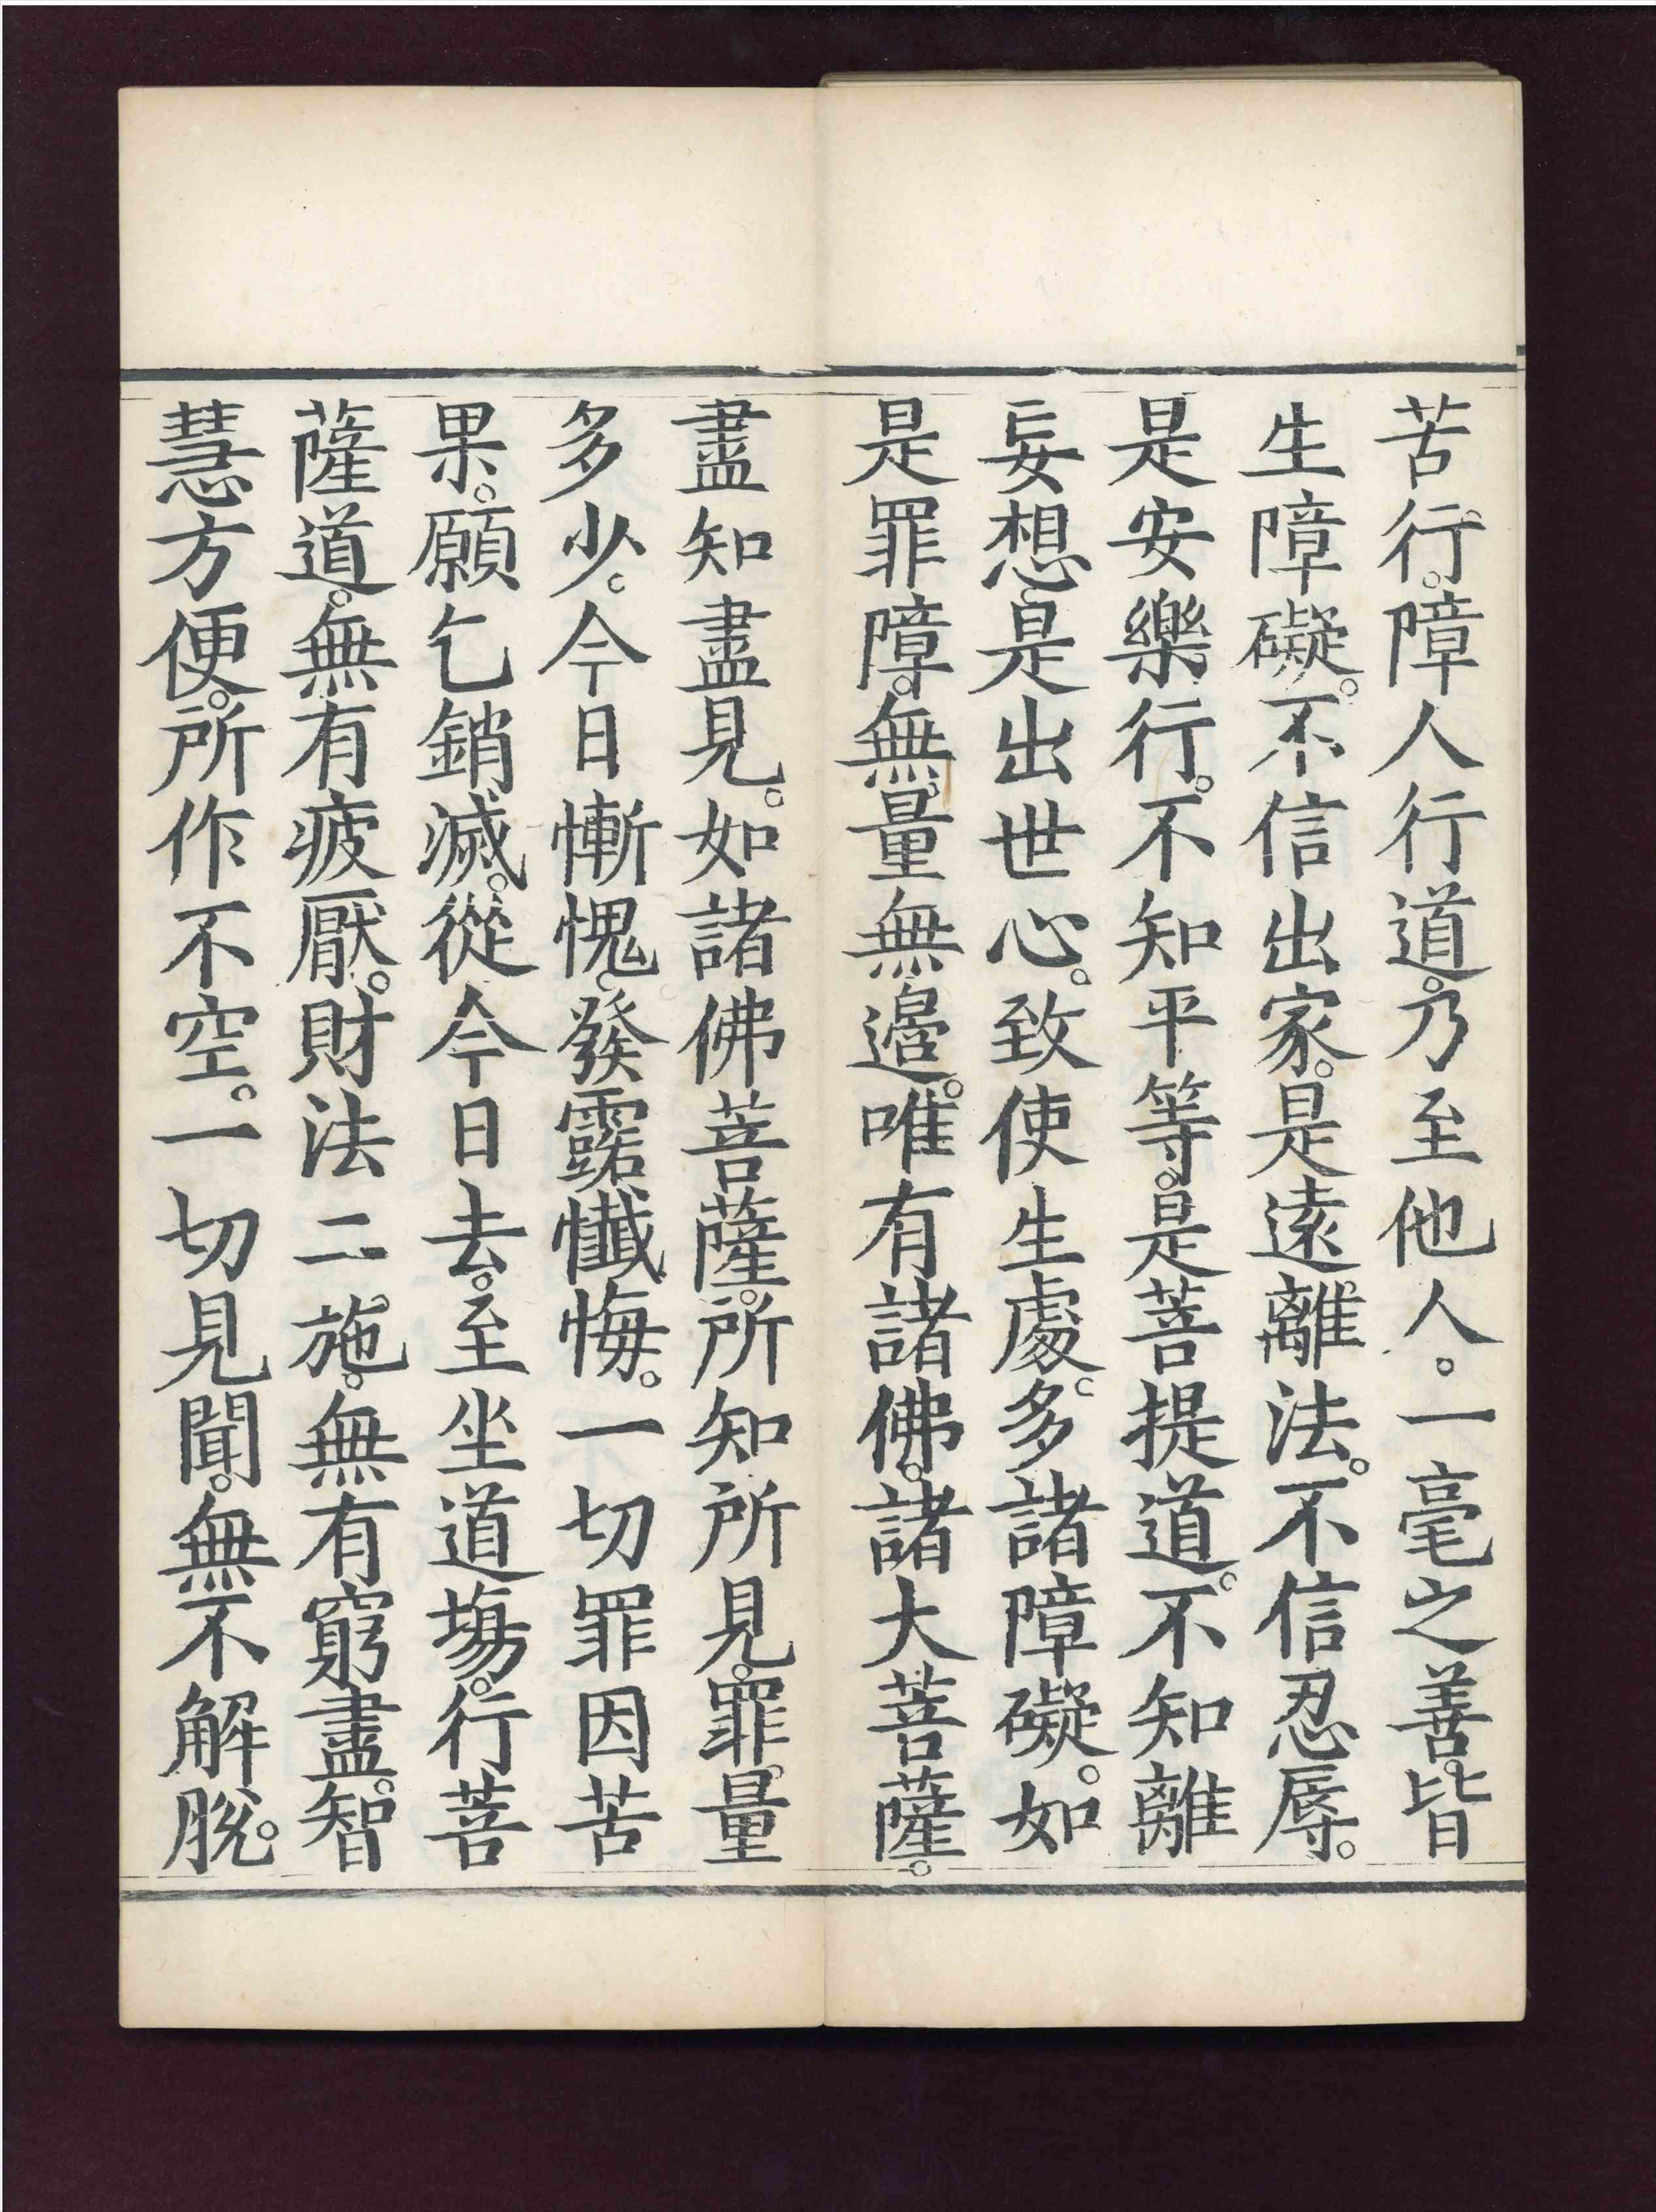 苦行。障人行道。乃至他人。一毫之善。皆
生障礙。不信出家。是遠離法。不信忍辱。
是安樂行。不知平等。是菩提道。不知離
妄想。是出世心。致使生處。多諸障礙。如
是罪障。無量無邊。唯有諸佛。諸大菩薩。
盡知盡見。如諸佛菩薩。所知所見。罪量
多少。今日慚愧。發露懺悔。一切罪因苦
果。願乞銷滅。從今日去。至坐道場。行菩
薩道。無有疲厭。財法二施。無有窮盡。智
慧方便。所作不空。一切見聞。無不解脫。